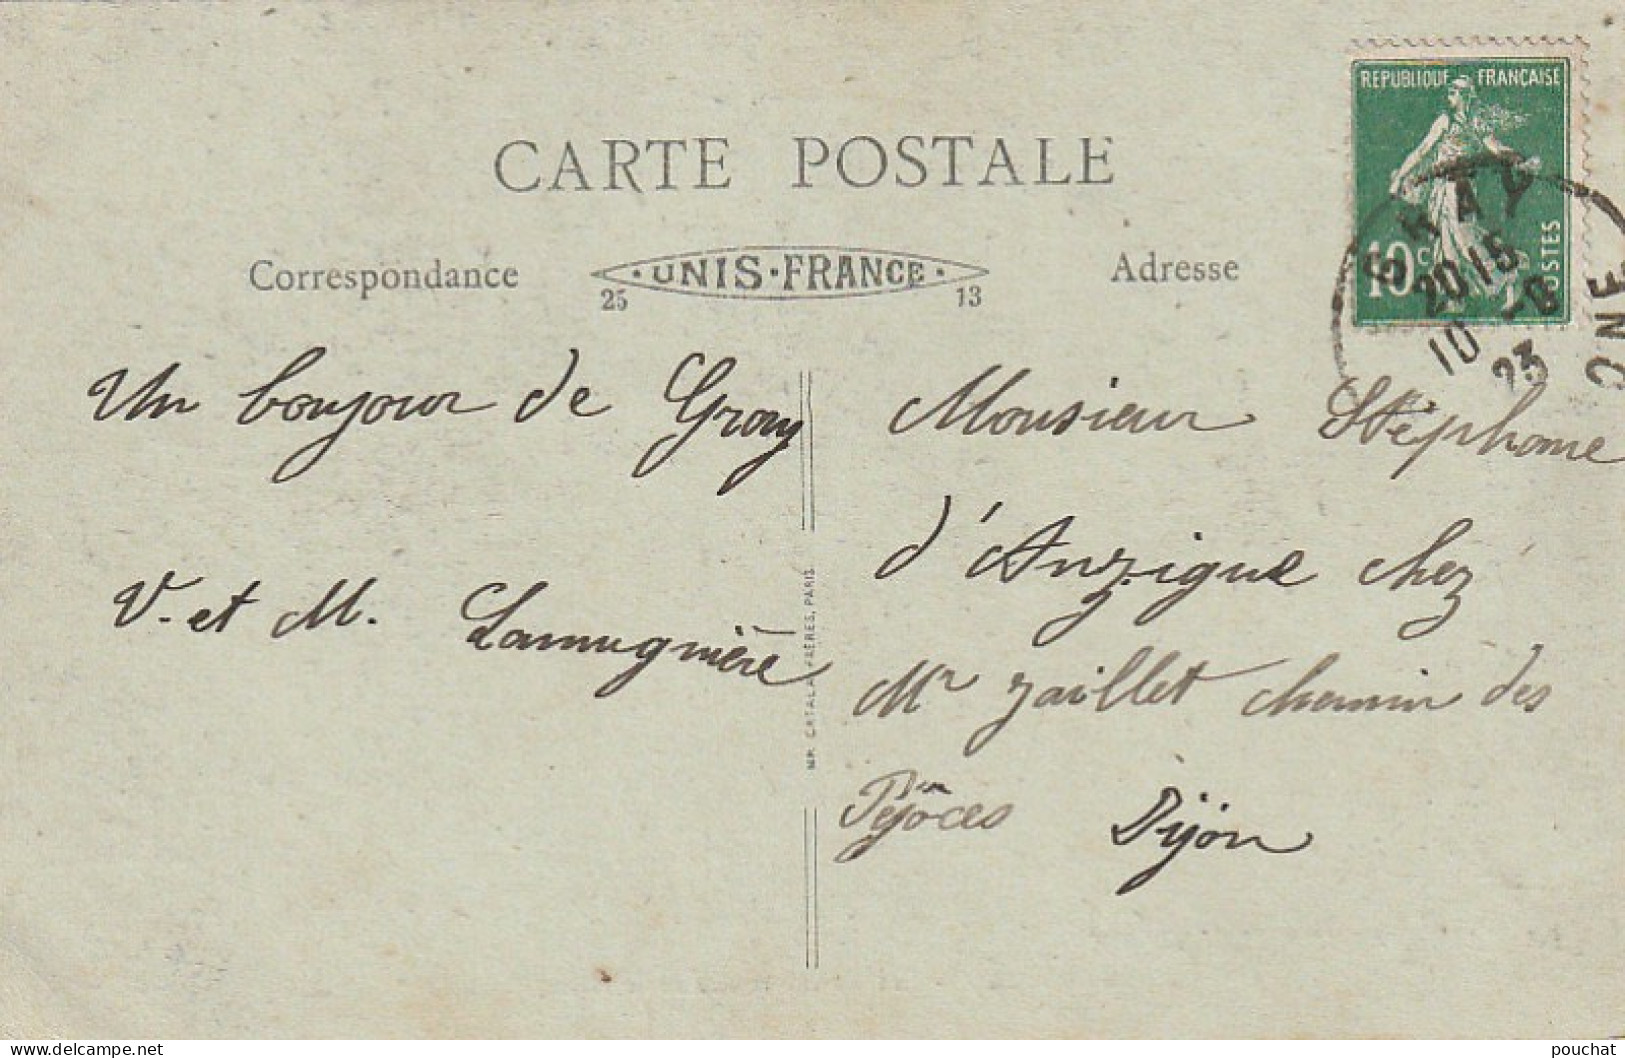 REPUBLIQUE FRANÇAISE
10c
POSTES
GRAY
20 15
10 -6
23
ONE
CARTE POSTALE
Correspondance
UNIS-FRANCE
25 13
Adresse
Un bonjour de Gray
V. et M. Lamugnière
IMP. CATALA FRÈRES, PARIS
Monsieur Stéphane
d'Anzigue chez
Mr Jaillet chemin des
Péjoces Dijon
pouchat